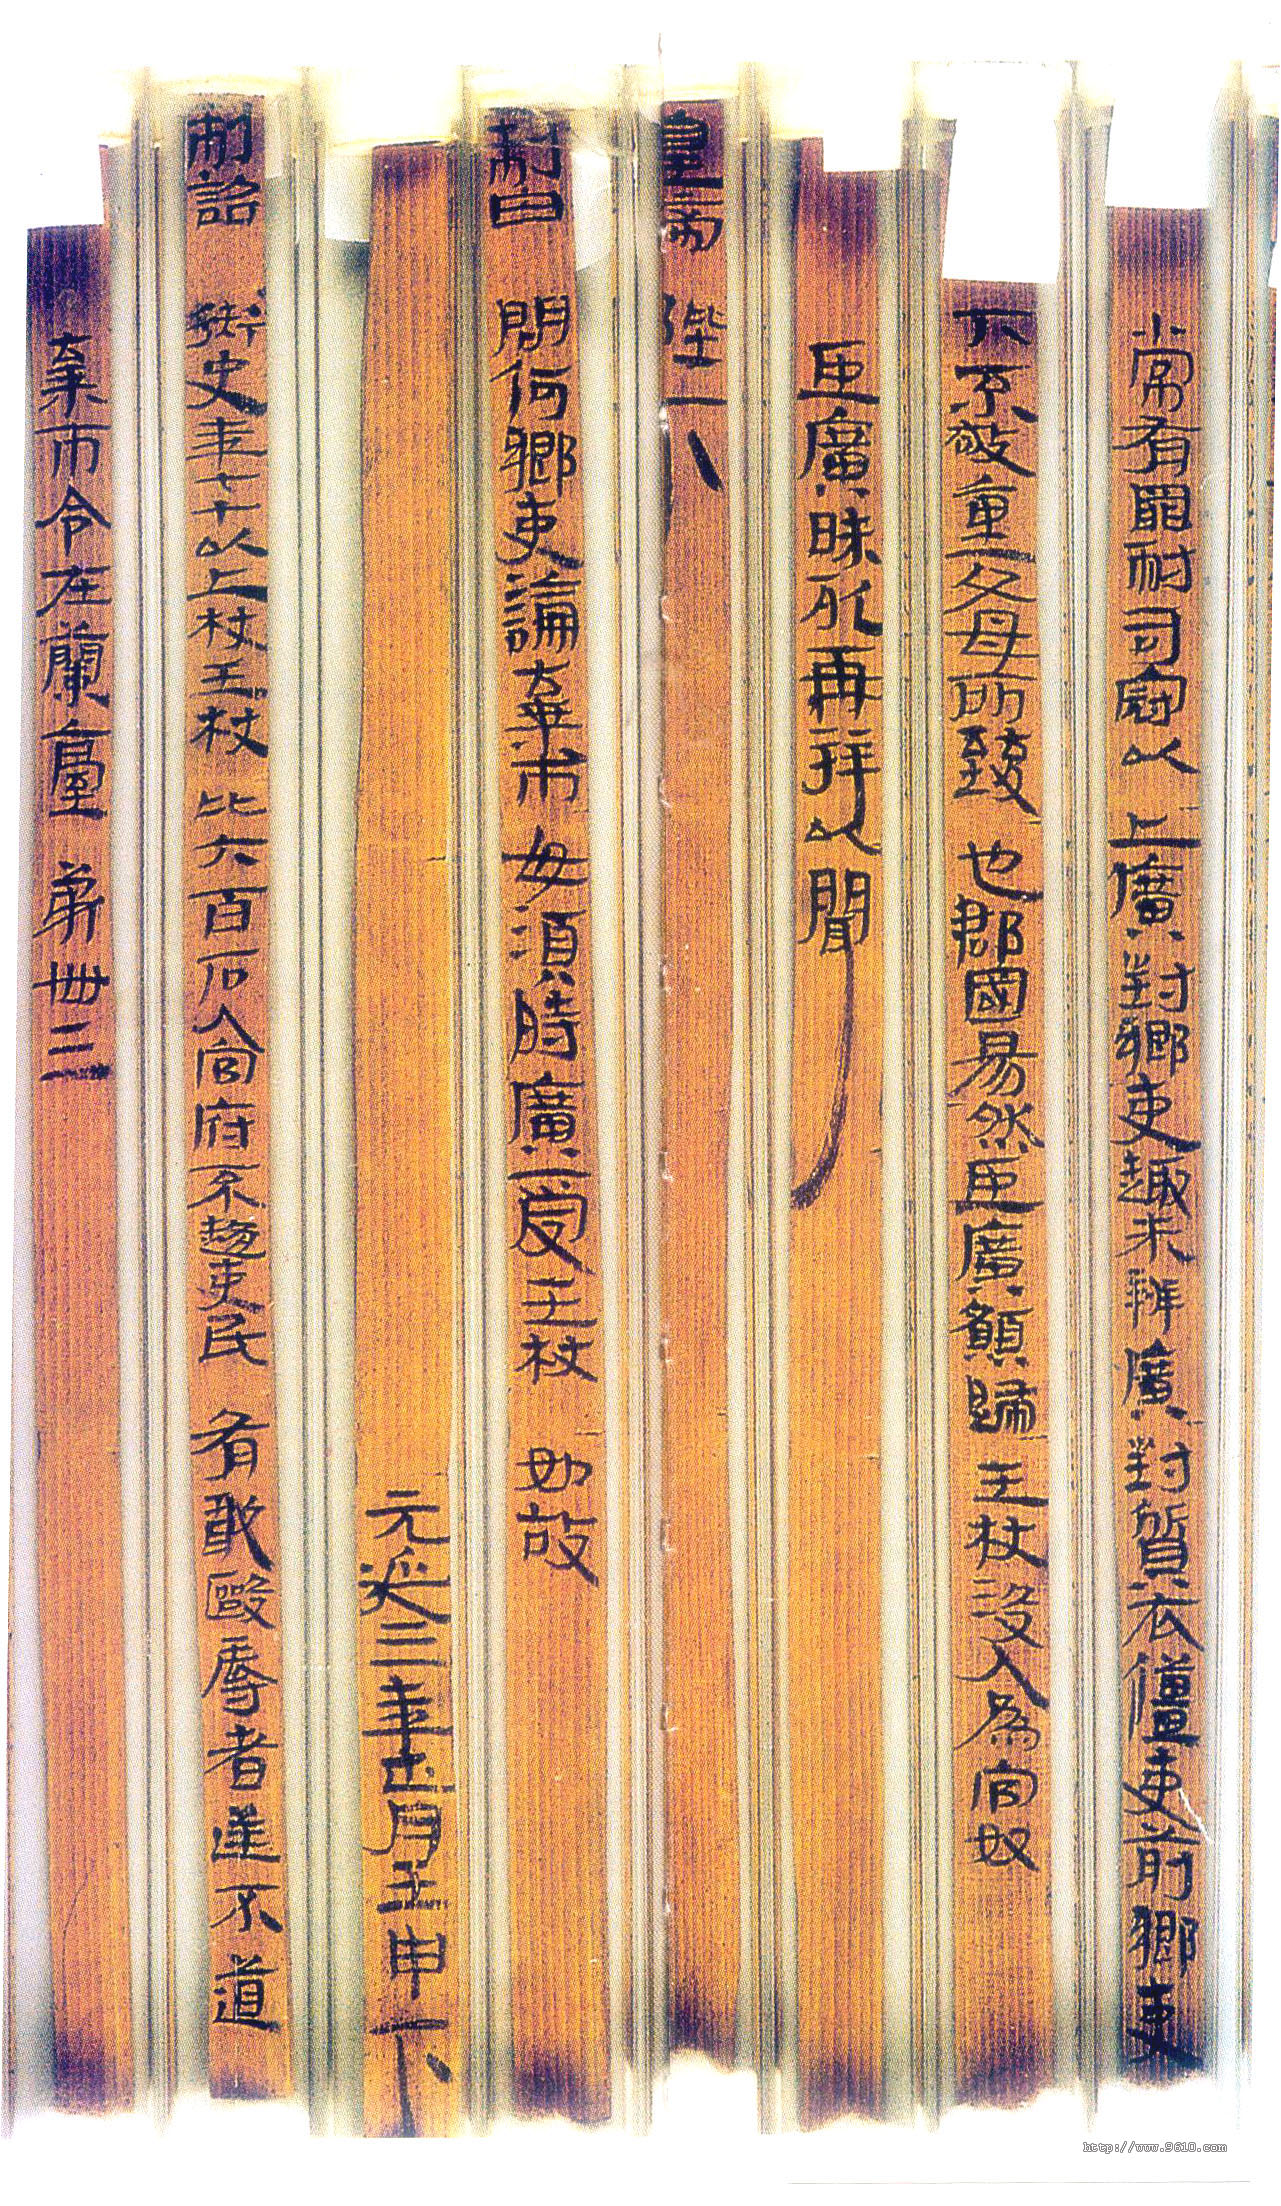 小常有罰耐司寇以上廣對鄉吏趣未辨廣對質衣僵吏前鄉吏
下不敬重父母所致也郡國易然臣廣願歸王杖沒入為官奴
臣廣昧死再拜以聞
皇帝陛下
制曰問何鄉吏論棄市毋須時廣受王杖如故
元延三年正月壬申下
制詔御史年七十以上杖王杖比六百石入官府不趨吏民有敢毆辱者逆不道
棄市令在蘭臺第卌三
http://www.9610.com